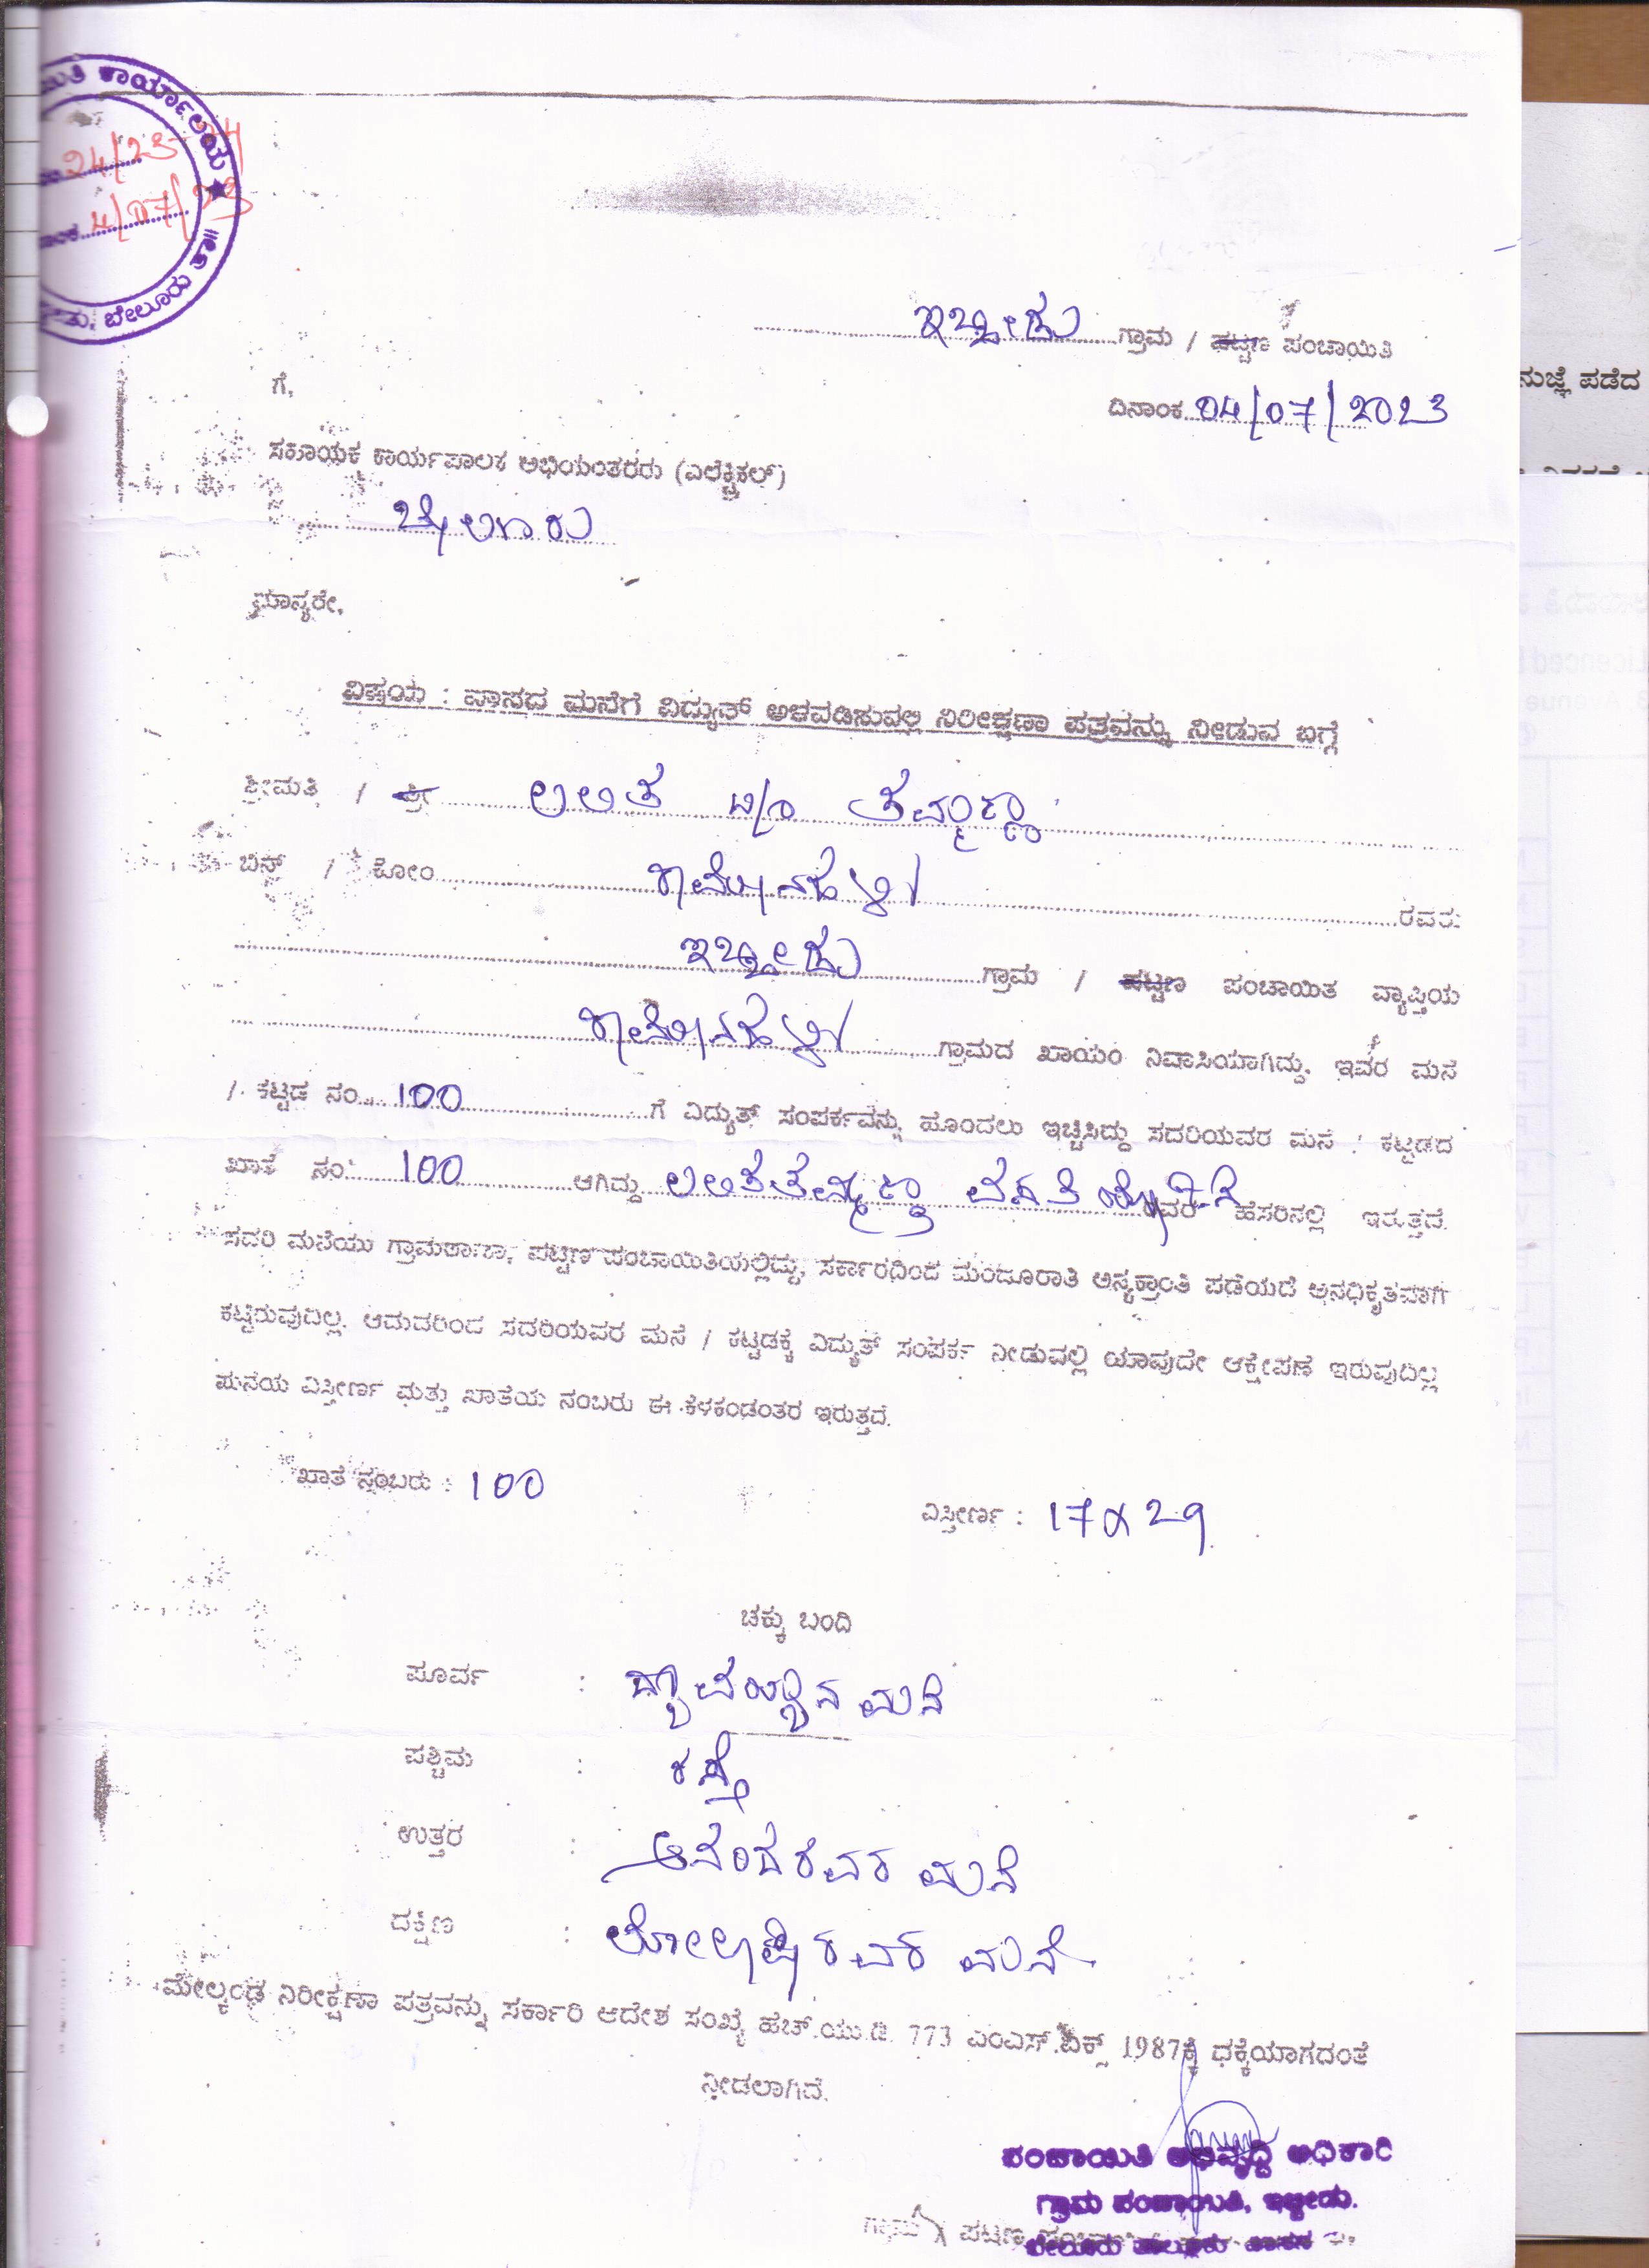 ಕಾರ್ಯಾಲಯ ★
24/23-24
4/07/23
ಬೇಲೂರು
ಇಬ್ಬೀಡು ಗ್ರಾಮ / ಪಟ್ಟಣ ಪಂಚಾಯಿತಿ
ಗೆ,
ದಿನಾಂಕ 04/07/2023
ಸಹಾಯಕ ಕಾರ್ಯಪಾಲಕ ಅಭಿಯಂತರರು (ಎಲೆಕ್ಟ್ರಿಕಲ್)
ಬೇಲೂರು
ಮಾನ್ಯರೇ,
ವಿಷಯ : ವಾಸದ ಮನೆಗೆ ವಿದ್ಯುತ್ ಅಳವಡಿಸುವಲ್ಲಿ ನಿರೀಕ್ಷಣಾ ಪತ್ರವನ್ನು ನೀಡುವ ಬಗ್ಗೆ
ಶ್ರೀಮತಿ / ಶ್ರೀ ಲಲಿತ
ಬಿನ್ / ಕೋಂ ರವರು
ಇಬ್ಬೀಡು ಗ್ರಾಮ / ಪಟ್ಟಣ ಪಂಚಾಯಿತ ವ್ಯಾಪ್ತಿಯ
ಗ್ರಾಮದ ಖಾಯಂ ನಿವಾಸಿಯಾಗಿದ್ದು, ಇವರ ಮನೆ
/ ಕಟ್ಟಡ ನಂ. 100 ಗೆ ವಿದ್ಯುತ್ ಸಂಪರ್ಕವನ್ನು ಹೊಂದಲು ಇಚ್ಚಿಸಿದ್ದು ಸದರಿಯವರ ಮನೆ / ಕಟ್ಟಡದ
ಖಾತೆ ನಂ. 100 ಆಗಿದ್ದು ರವರ ಹೆಸರಿನಲ್ಲಿ ಇರುತ್ತದೆ.
ಸದರಿ ಮನೆಯು ಗ್ರಾಮಠಾಣಾ, ಪಟ್ಟಣ ಪಂಚಾಯಿತಿಯಲ್ಲಿದ್ದು, ಸರ್ಕಾರದಿಂದ ಮಂಜೂರಾತಿ ಅನ್ಯಕ್ರಾಂತಿ ಪಡೆಯದೆ ಅನಧಿಕೃತವಾಗಿ
ಕಟ್ಟಿರುವುದಿಲ್ಲ. ಆದುದರಿಂದ ಸದರಿಯವರ ಮನೆ / ಕಟ್ಟಡಕ್ಕೆ ವಿದ್ಯುತ್ ಸಂಪರ್ಕ ನೀಡುವಲ್ಲಿ ಯಾವುದೇ ಆಕ್ಷೇಪಣೆ ಇರುವುದಿಲ್ಲ
ಮನೆಯ ವಿಸ್ತೀರ್ಣ ಮತ್ತು ಖಾತೆಯ ನಂಬರು ಈ ಕೆಳಕಂಡಂತರ ಇರುತ್ತದೆ.
ಖಾತೆ ನಂಬರು : 100
ವಿಸ್ತೀರ್ಣ : 17 x 29
ಚಕ್ಕು ಬಂದಿ
ಪೂರ್ವ : ಮನೆ
ಪಶ್ಚಿಮ : ರಸ್ತೆ
ಉತ್ತರ : ಆನಂದರವರ ಮನೆ
ದಕ್ಷಿಣ : ಮನೆ
ಮೇಲ್ಕಂಡ ನಿರೀಕ್ಷಣಾ ಪತ್ರವನ್ನು ಸರ್ಕಾರಿ ಆದೇಶ ಸಂಖ್ಯೆ ಹೆಚ್.ಯು.ಡಿ. 773 ಎಂಎಸ್. 1987ಕ್ಕೆ ಧಕ್ಕೆಯಾಗದಂತೆ
ನೀಡಲಾಗಿದೆ.
ಪಂಚಾಯಿತಿ ಅಭಿವೃದ್ಧಿ ಅಧಿಕಾರಿ
ಗ್ರಾಮ ಪಂಚಾಯಿತಿ, ಇಬ್ಬೀಡು.
ಬೇಲೂರು ತಾಲ್ಲೂಕು ಹಾಸನ